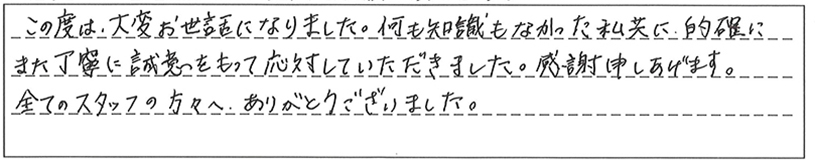 この度は、大変お世話になりました。何も知識もなかった私共に、的確に
また丁寧に誠意をもって応対していただきました。感謝申しあげます。
全てのスタッフの方々へ、ありがとうございました。